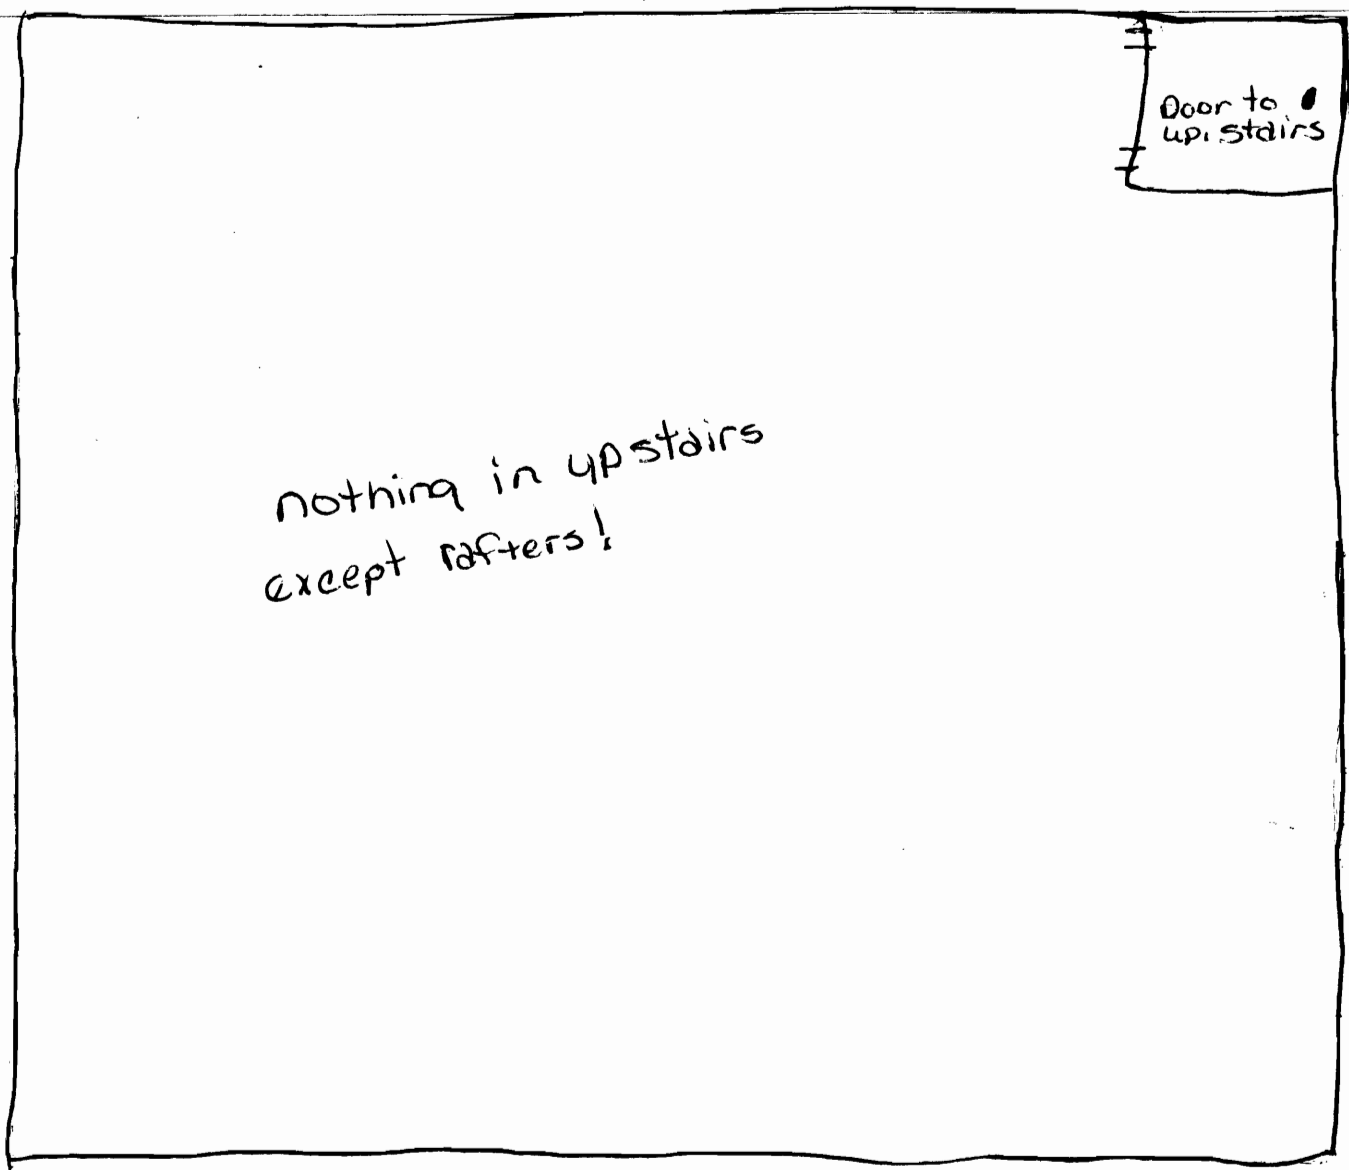 Door to
up. stairs
nothing in upstairs
except rafters!